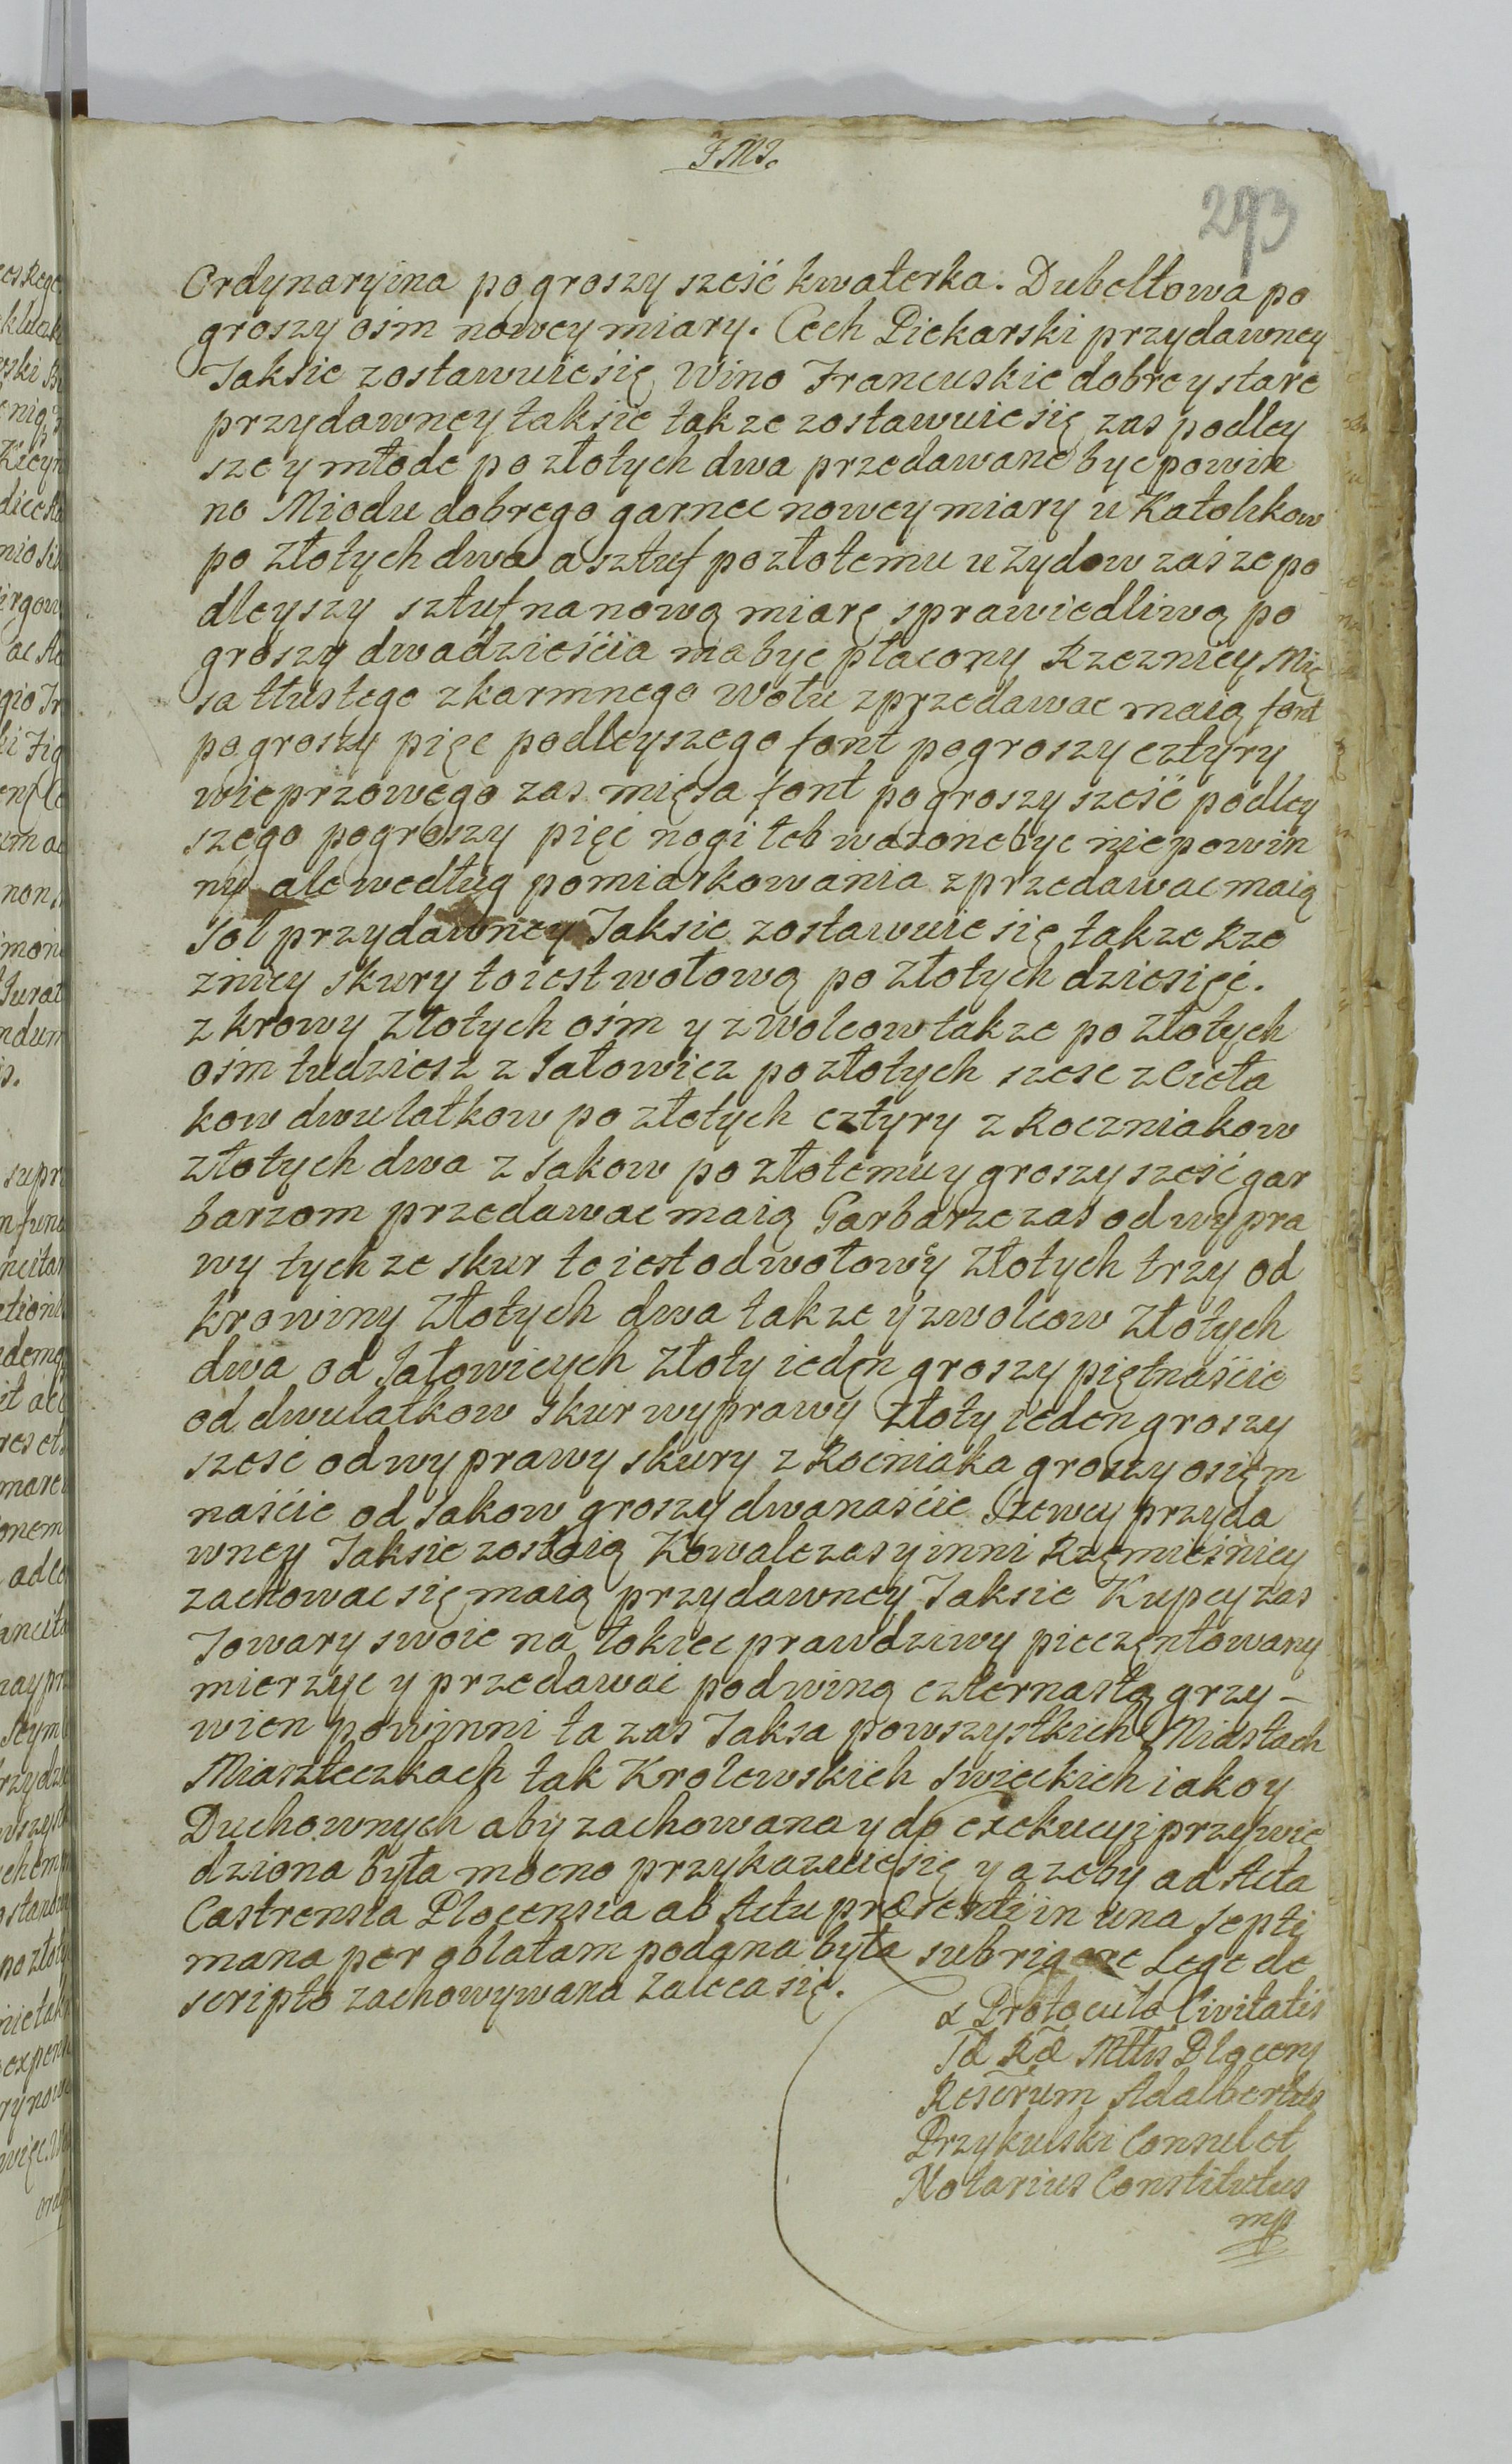 J M J.
293
Ordynaryina po groszy sześć kwaterka. Dubeltowa po
groszy ośm nowey miary. Cech Piekarski przydawney
Taksie zostawuie się Wino Francuskie dobre y stare
przydawney taksie takze zostawuie się zas podley
sze y młode po złotych dwa przedawane byc powin
no Miodu dobrego garnec nowey miary u Katolikow
po złotych dwa a sztuf po złotemu u zydow zaś ze po
dleyszy sztuf na nową miarę sprawiedliwą po
groszy dwadzieścia ma byc płacony Rzeznicy Mię
sa tłustego z karmnego wołu zprzedawac maią font
po groszy pięc podleyszego font po groszy cztyry
wieprzowego zas mięsa font po groszy sześć podley
szego po groszy pięć nogi łeb wazone byc nie powin
ny ale według pomiarkowania zprzedawac maią
Sol przydawney Taksie zostawuie się takze Rze
znicy skury to iest wołową po złotych dziesięć.
z krowy złotych ośm y z wolcow takze po złotych
ośm tudziesz z Jałowicz po złotych szesc z Cieła
kow dwulatkow po złotych cztyry z Roczniakow
złotych dwa z Sakow po złotemu y groszy sześć gar
barzom przedawac maią Garbarze zas od wypra
wy tych ze skur to iest od wołowy złotych trzy od
krowiny złotych dwa takze y z wolcow złotych
dwa od Jałowicych złoty iedęn groszy piętnaście
od dwulatkow skur wyprawy złoty ieden groszy
szesć od wyprawy skury z Rocniaka groszy osięm
naście od Sakow groszy dwanaście Szewcy przyda
wney Taksie zostaią Kowale zas y inni Rzęmieśnicy
zachowac się maią przydawney Taksie Kupcy zas
Towary swoie na łokiec prawdziwy pieczętowany
mierzyc y przedawać pod winą czternastą grzy-
wien powinni ta zas Taksa powszystkich Miastach
Miasteczkach tak Krolewskich swieckich iako y
Duchownych aby zachowana y do exekucyi przywie
dziona była mocno przykazuie się y azeby ad Acta
Castrensia Plocensia ab Actu præsenti in una septi
mana per oblatam podana była sub rigore Lege de
scripto zachowywana zaleca się.
Protoculo Civitatis
Plocens
Adalbertus
Przykulski Consul et
Notarius Constitutus
mp